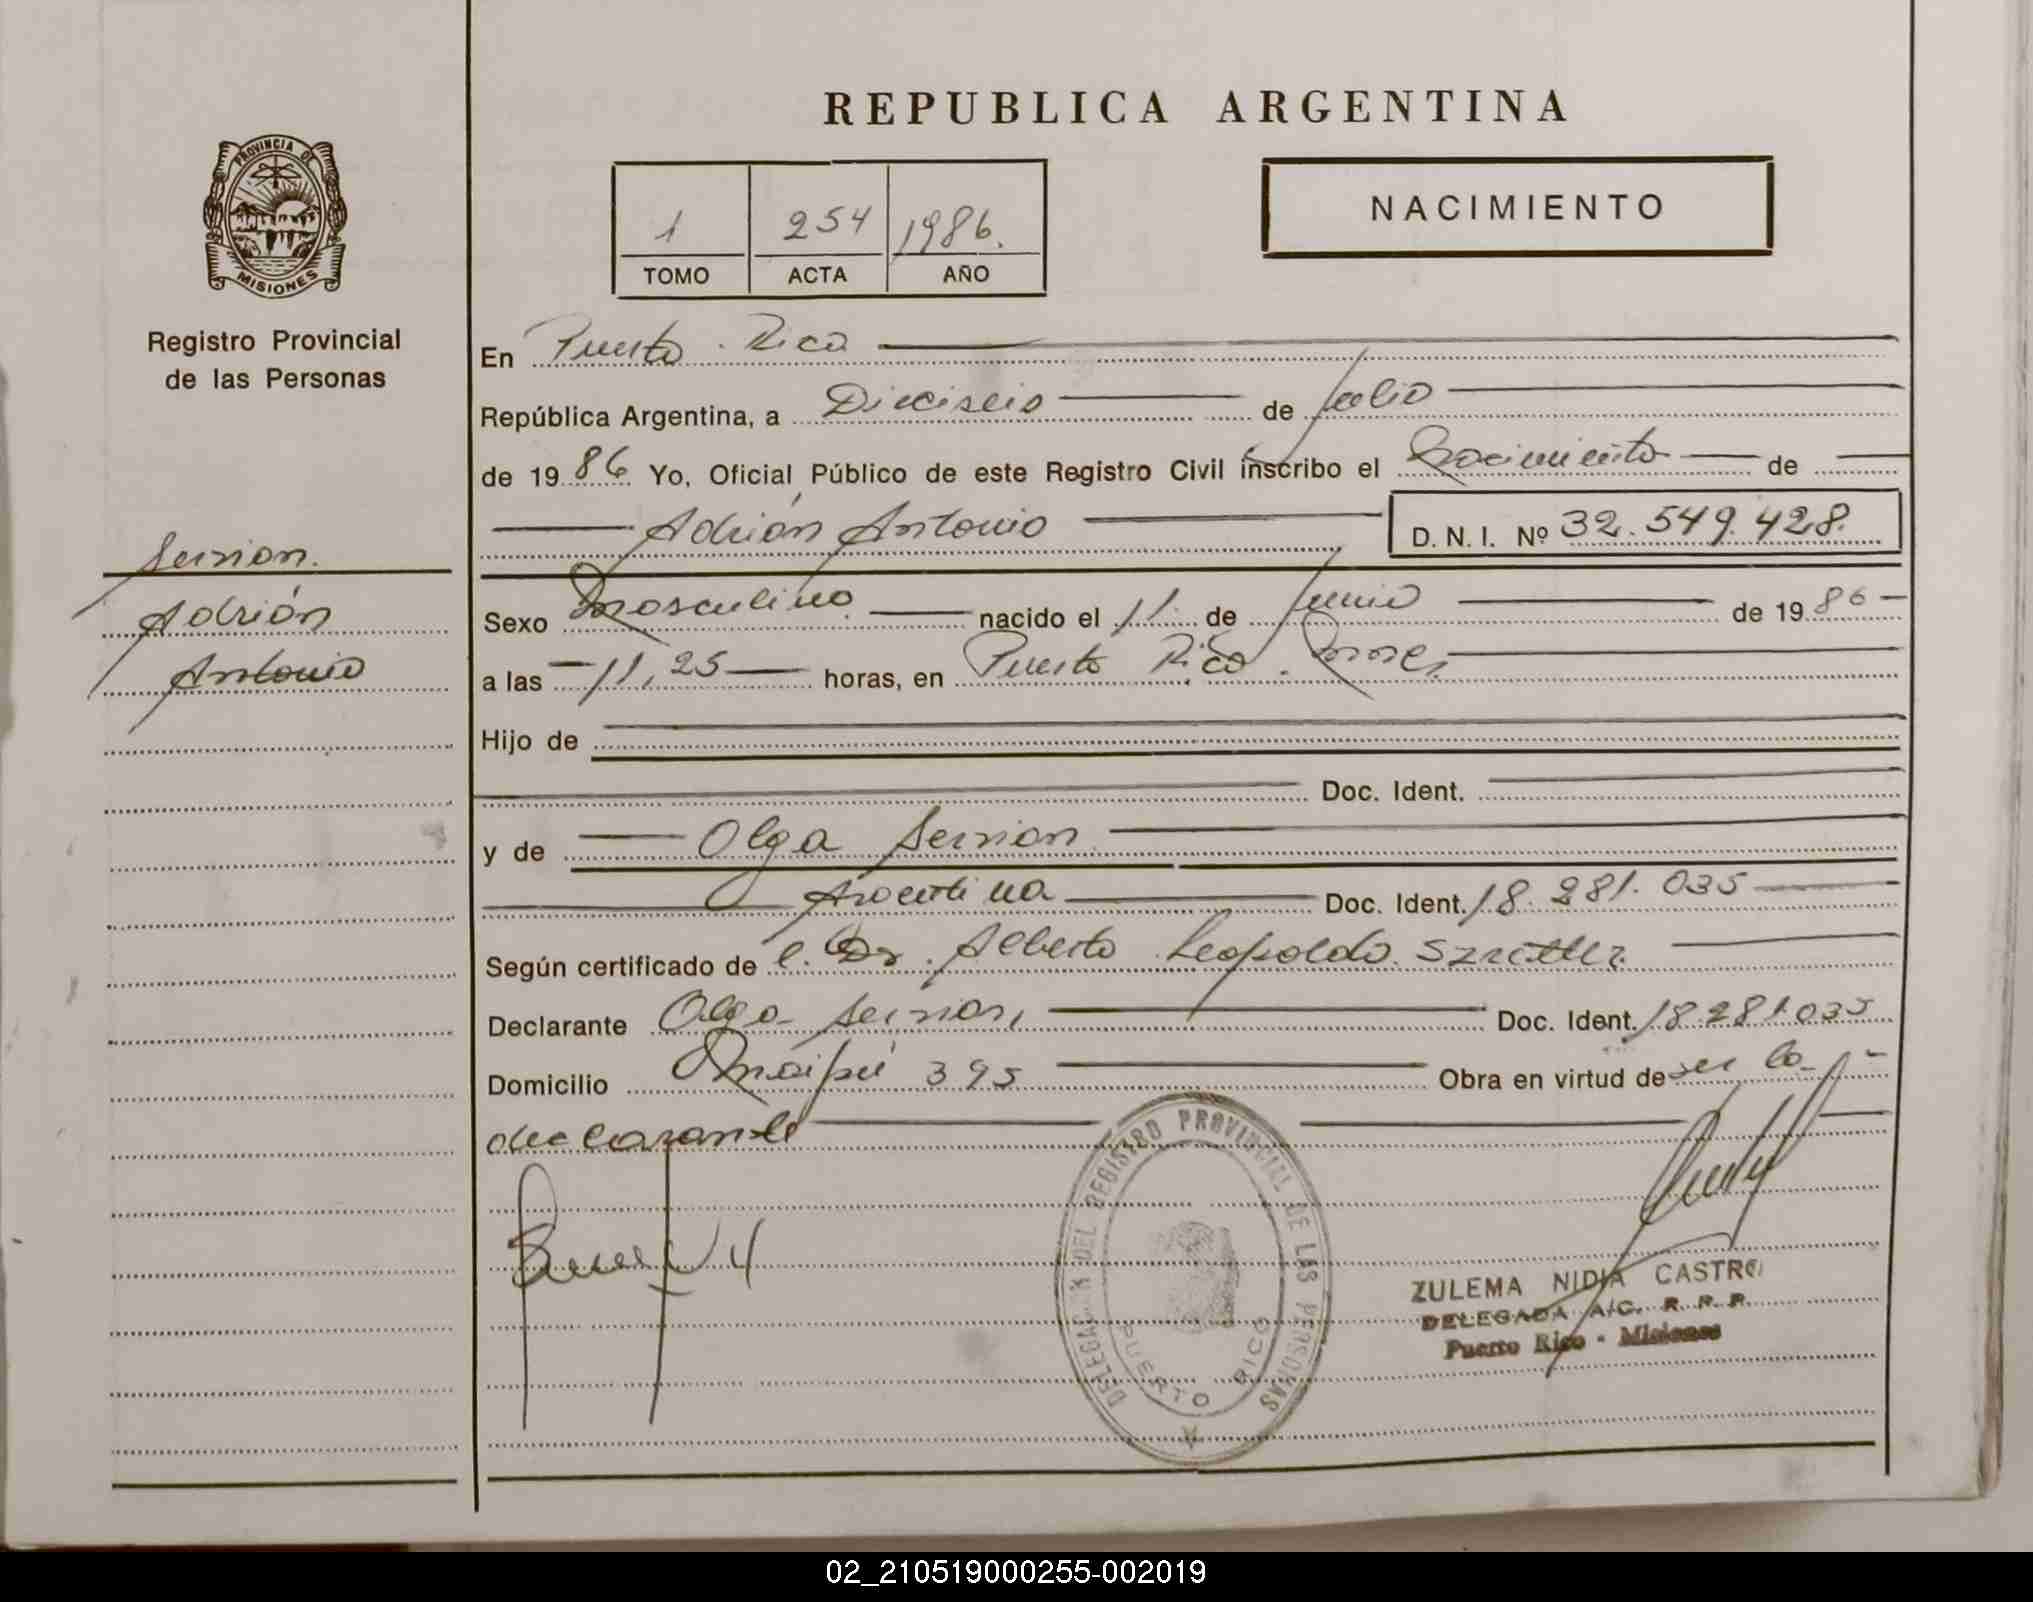 REPUBLICA ARGENTINA
PROVINCIA DE
MISIONES
Registro Provincial
de las Personas
1 254 1986.
TOMO ACTA AÑO
NACIMIENTO
En Puerto Rico
República Argentina, a Dieciseis de Julio
de 1986 Yo, Oficial Público de este Registro Civil inscribo el Nacimiento de
Adrián Antonio D. N. I. Nº 32.549.428.
Servian.
Adrián
Antonio
Sexo Masculino nacido el 11 de Junio de 1986
a las 11,25 horas, en Puerto Rico.
Hijo de
Doc. Ident.
y de Olga Servian
Argentina Doc. Ident. 18.281.035
Según certificado de l. Dr. Alberto Leopoldo
Declarante Olga Servian, Doc. Ident. 18.281.035
Domicilio Maipú 395 Obra en virtud de ser la
declarante
DELEGACION DEL REGISTRO PROVINCIAL DE LAS PERSONAS
PUERTO RICO
ZULEMA NIDIA CASTRO
DELEGADA A/C. R. P. P.
Puerto Rico - Misiones
02_210519000255-002019